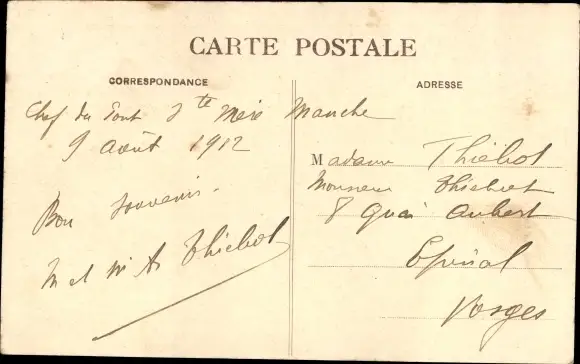 CARTE POSTALE
CORRESPONDANCE
ADRESSE
Chef du Pont Ste Mère Manche
9 Août 1912
Bon souvenir.
M et Thiébot
Madame Thiébot
Monsieur Thiébot
8 Quai Aubert
Epinal
Vosges